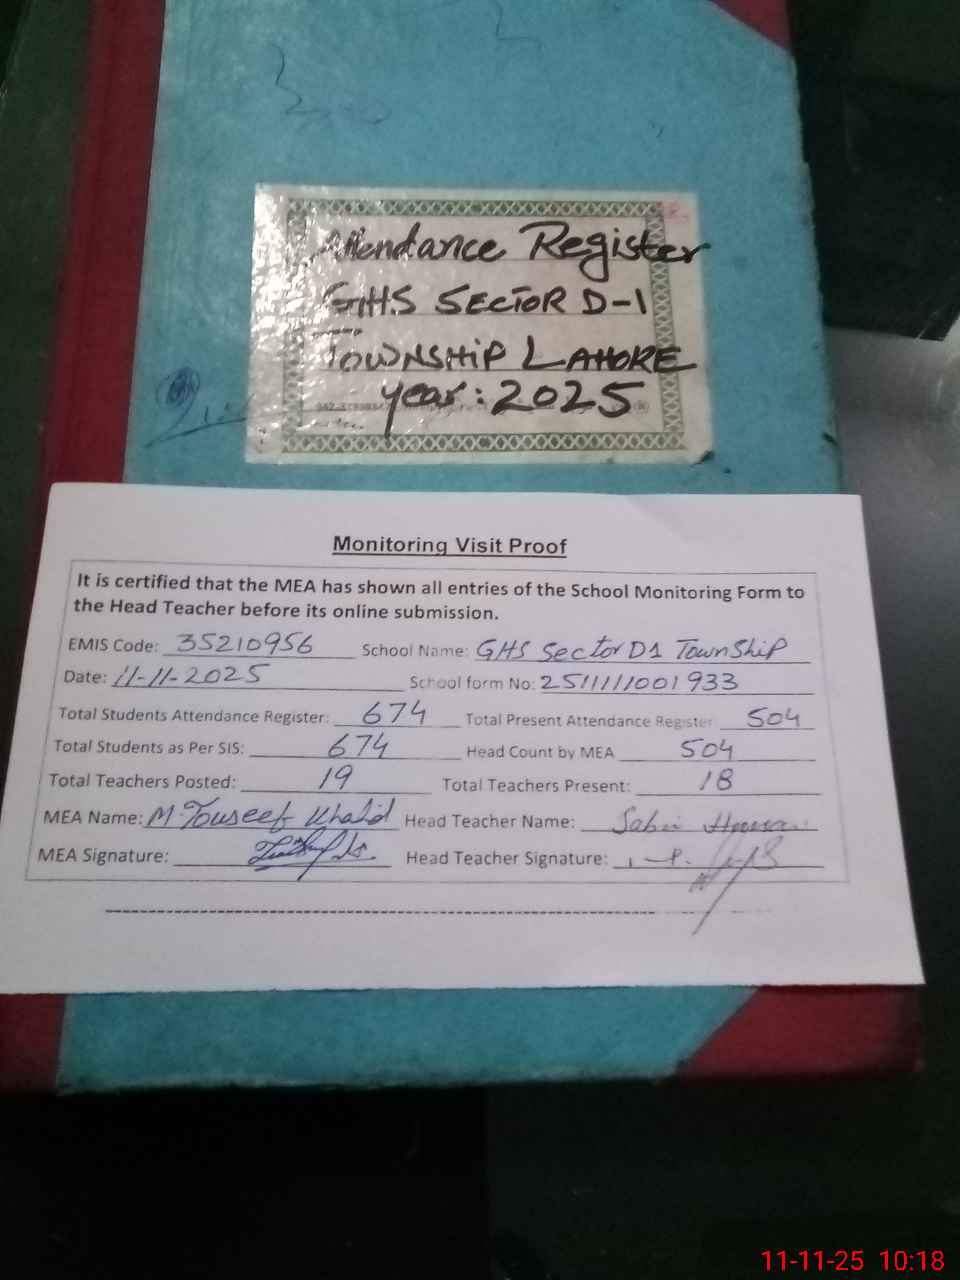 Attendance Register
GHS SECTOR D-1
TOWNSHIP LAHORE
year: 2025
Monitoring Visit Proof
It is certified that the MEA has shown all entries of the School Monitoring Form to
the Head Teacher before its online submission.
EMIS Code: 35210956 School Name: GHS Sector D1 TownShip
Date: 11-11-2025 School form No: 251111001933
Total Students Attendance Register: 674 Total Present Attendance Register 504
Total Students as Per SIS: 674 Head Count by MEA 504
Total Teachers Posted: 19 Total Teachers Present: 18
MEA Name: M. Touseef Khalid Head Teacher Name:
MEA Signature: Head Teacher Signature:
11-11-25 10:18